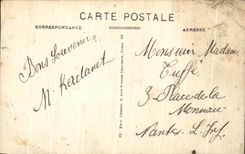 CARTE POSTALE
CORRESPONDANCE
ADRESSE
Bons Souvenirs
M. Kerdanet
Monsieur Madame
Tuffé
3 Place de la
Monnaie
Nantes L. Inf.